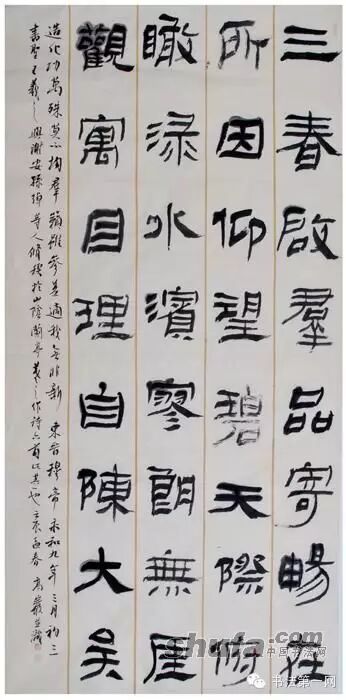 三春啟羣品寄暢在
所因仰望碧天際俯
瞰渌水濱寥朗無厓
觀寓目理自陳大矣
造化功萬殊莫不均羣籟雖參差適我無非新 東晉穆帝永和九年三月初三
書聖王羲之與謝安孫綽等人脩禊於山陰蘭亭羲之作詩六首此其一也壬辰孟春高
shufa.com
中国书法网
书法第一网